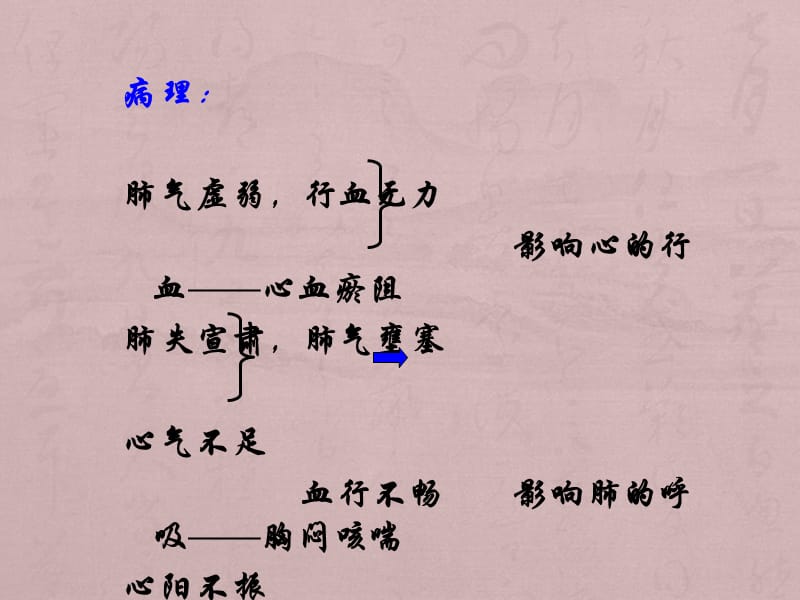 病理：
肺气虚弱，行血无力
影响心的行
血——心血瘀阻
肺失宣肃，肺气壅塞
心气不足
血行不畅 影响肺的呼
吸——胸闷咳喘
心阳不振